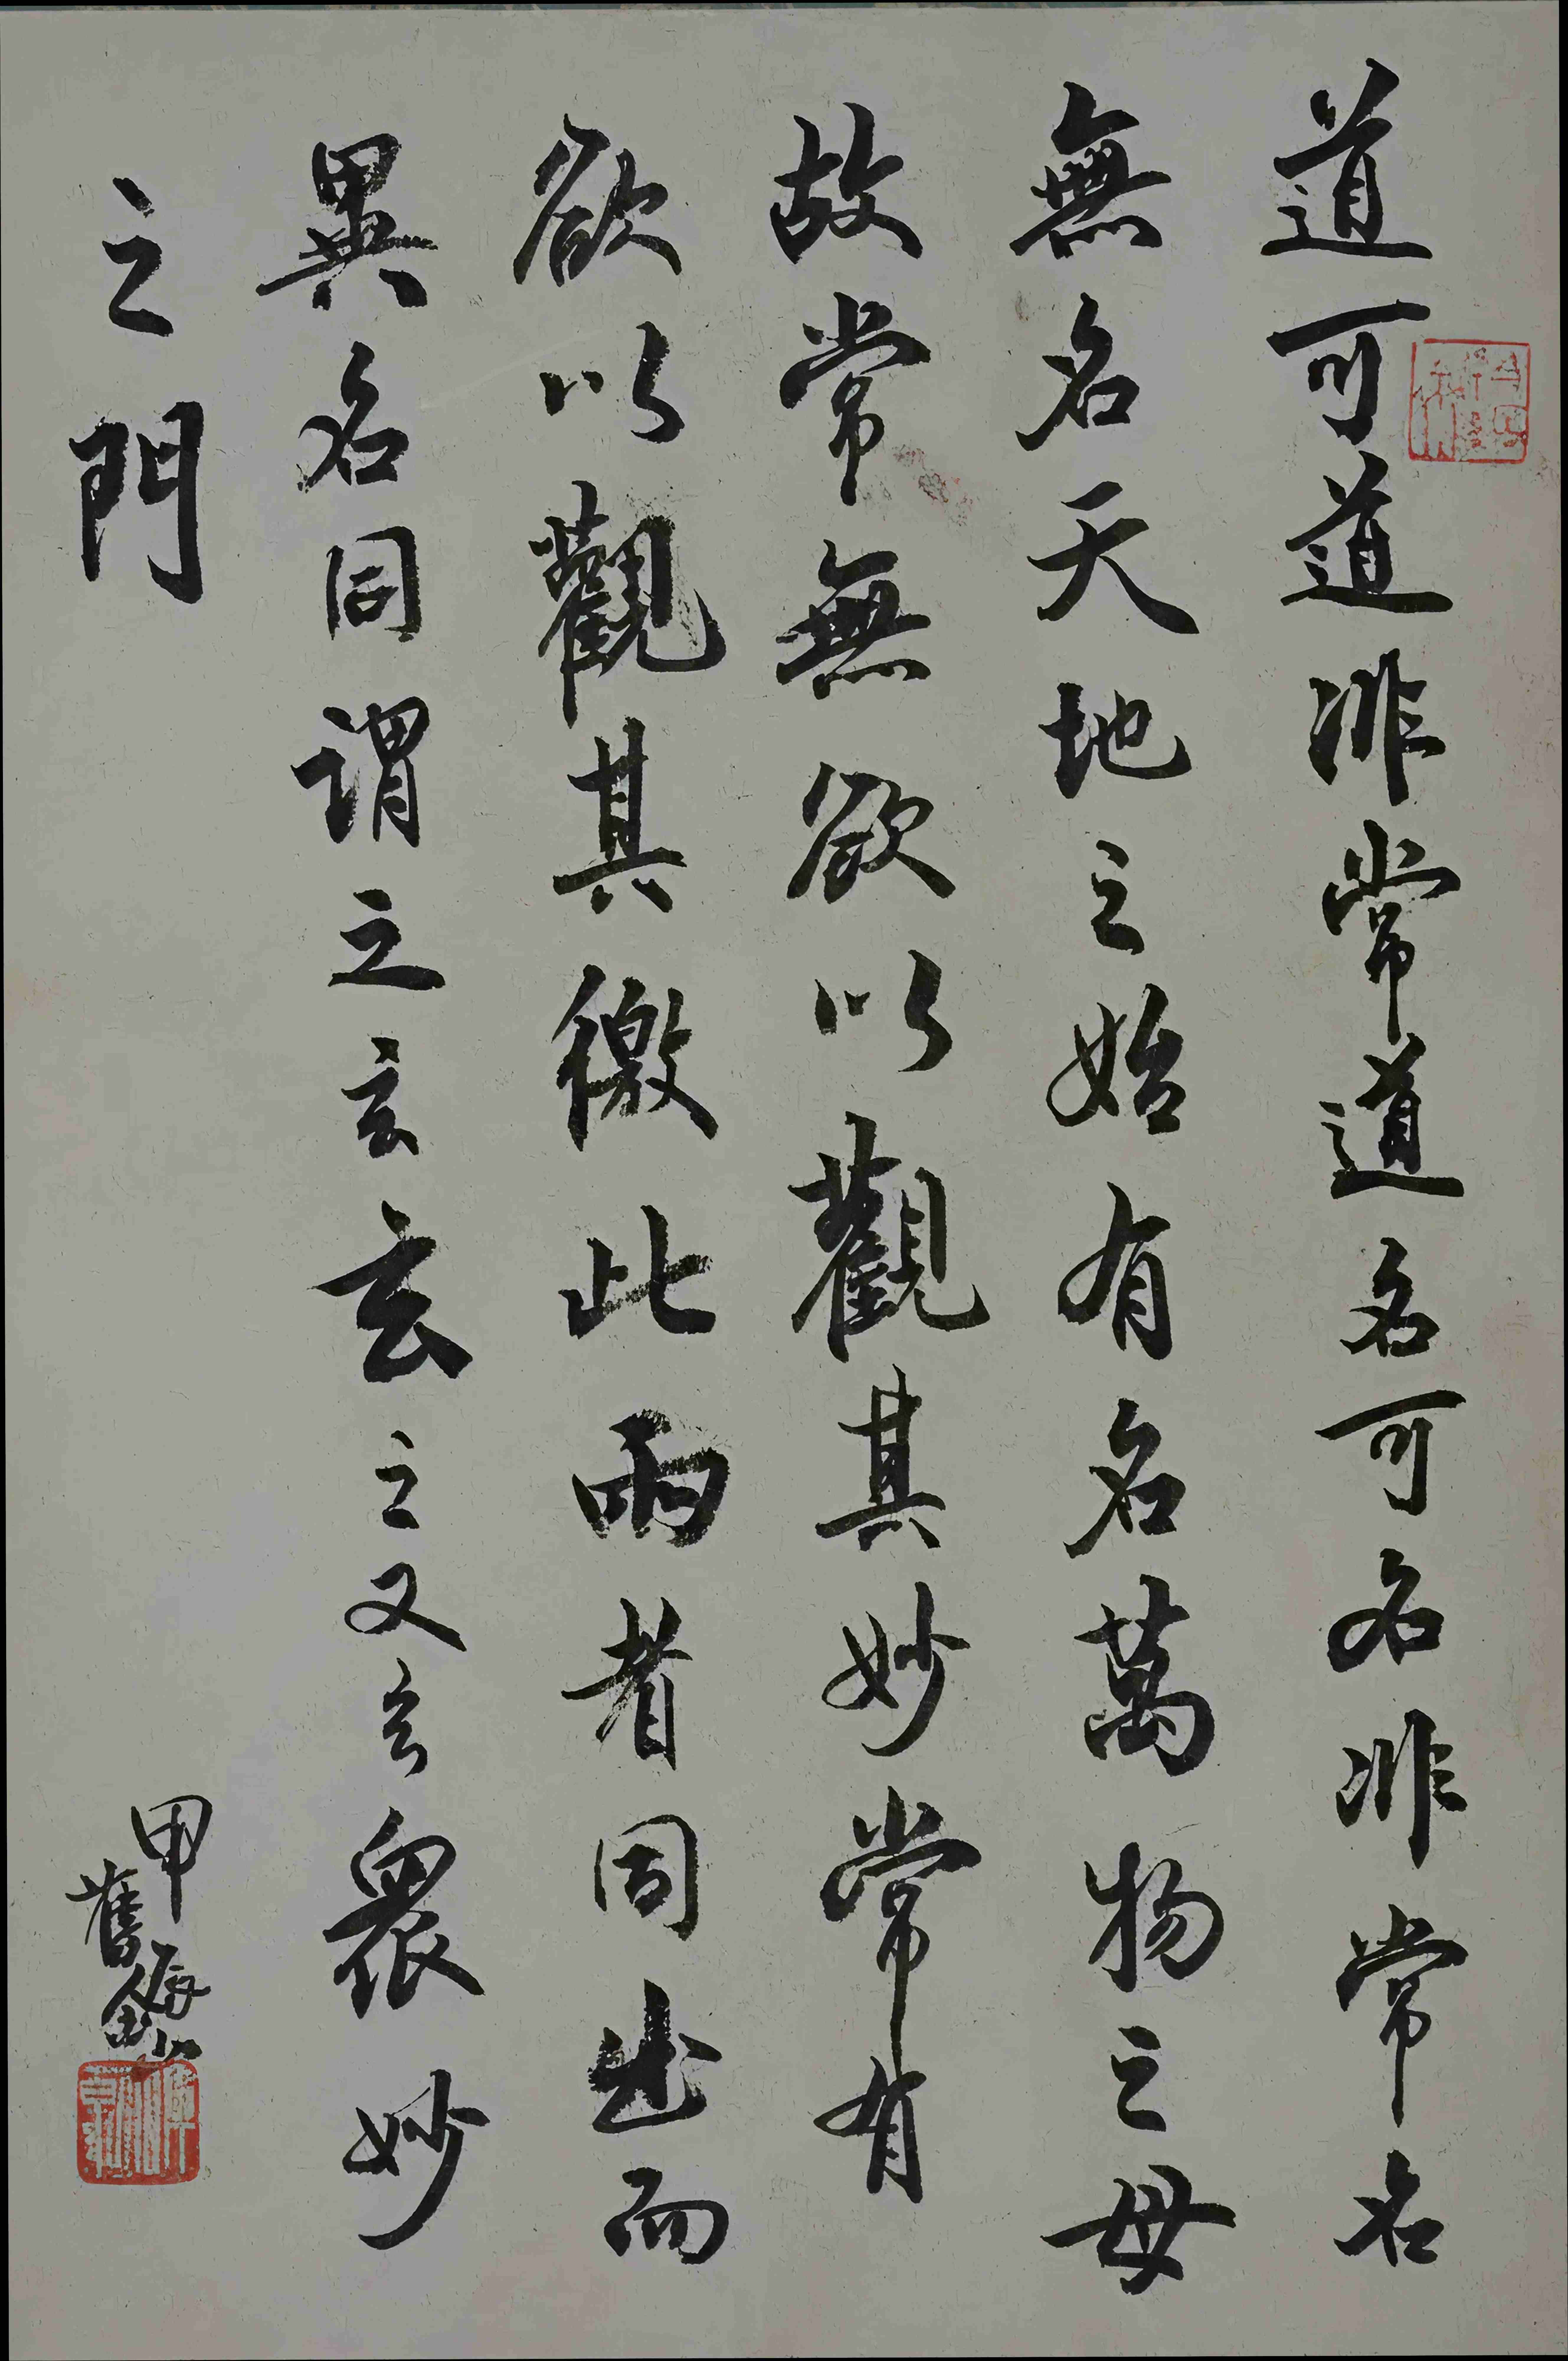 道可道非常道名可名非常名
無名天地之始有名萬物之母
故常無欲以觀其妙常有
欲以觀其徼此兩者同出而
異名同謂之玄玄之又玄衆妙
之門